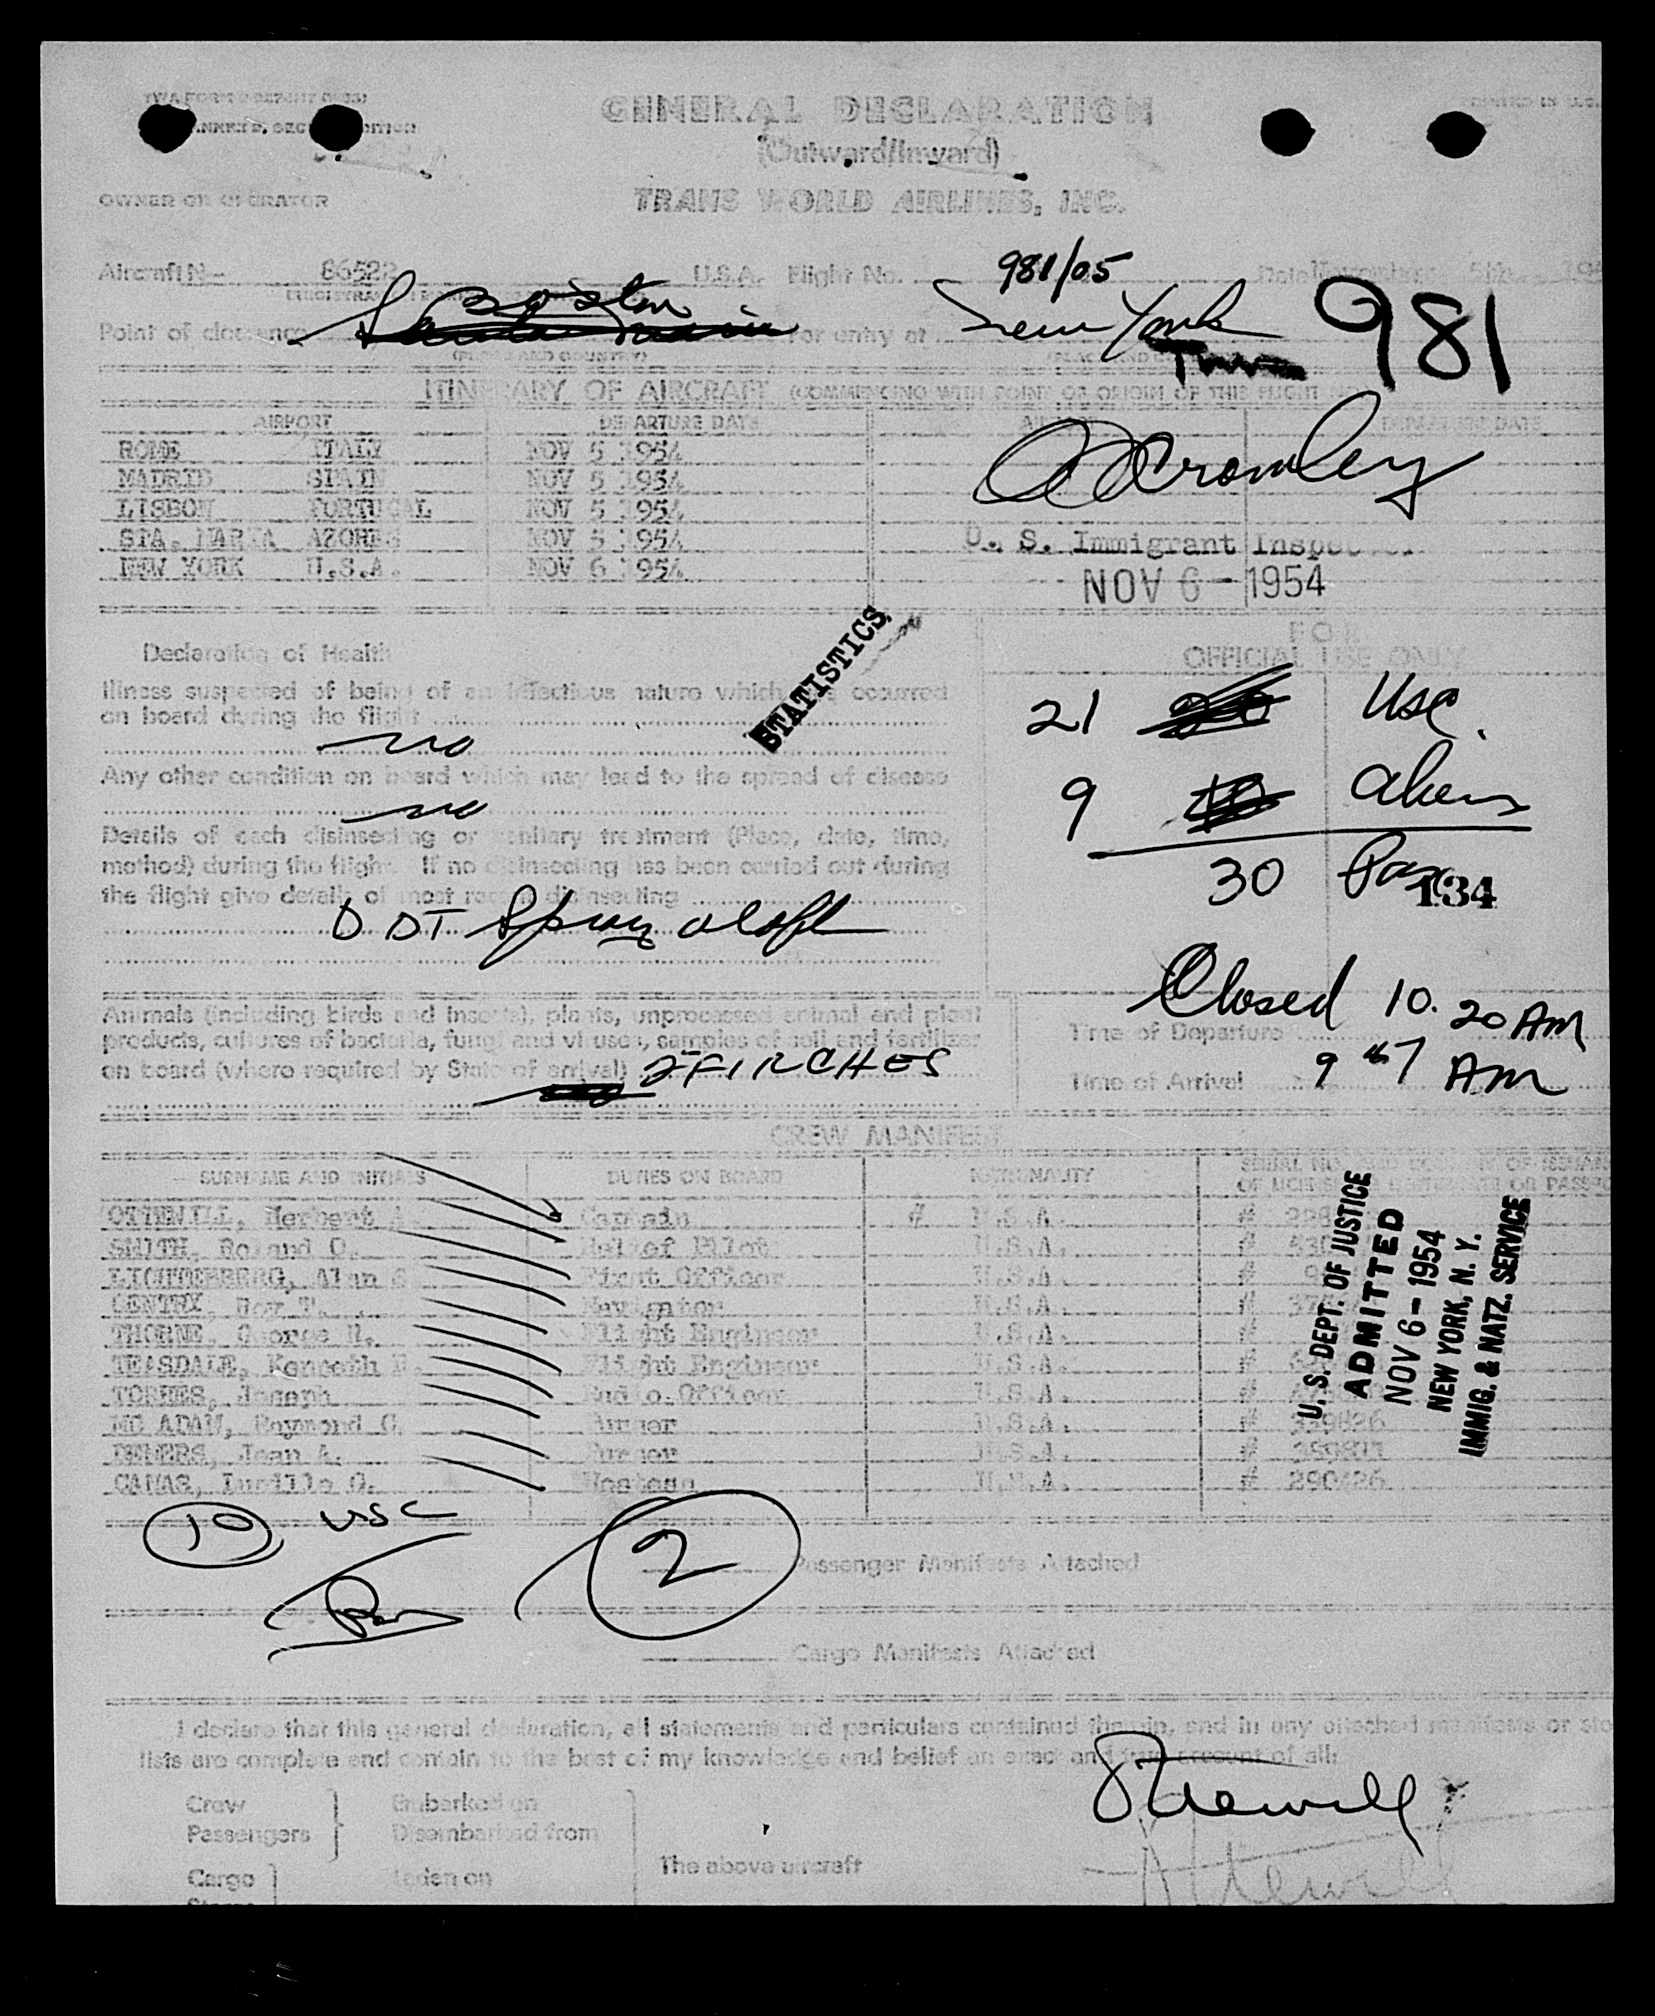 GENERAL DECLARATION
(Outward/Inward)
OWNER OR OPERATOR TRANS WORLD AIRLINES, INC.
Aircraft N- 86522 U.S.A. Flight No. 981/05 Date November 5th
Point of clearance Boston For entry at New York 981
(PLACE AND COUNTRY)
TWA
ITINERARY OF AIRCRAFT (COMMENCING WITH POINT OF ORIGIN OF THIS FLIGHT
AIRPORT DEPARTURE DATE AIRPORT DEPARTURE DATE
ROME ITALY NOV 5 1954
MADRID SPAIN NOV 5 1954
LISBON PORTUGAL NOV 5 1954
STA. MARIA AZORES NOV 5 1954
NEW YORK U.S.A. NOV 6 1954
Cromley
U. S. Immigrant Inspector
NOV 6 - 1954
STATISTICS
Declaration of Health
Illness suspected of being of an infectious nature which has occurred
on board during the flight
no
Any other condition on board which may lead to the spread of disease
no
Details of each disinsecting or sanitary treatment (Place, date, time,
method) during the flight. If no disinsecting has been carried out during
the flight give details of most recent disinsecting
DDT Spray aloft
FOR
OFFICIAL USE ONLY
21 USC.
9 aliens
30 Pax
134
Closed 10.20 AM
Animals (including birds and insects), plants, unprocessed animal and plant
products, cultures of bacteria, fungi and viruses, samples of soil and fertilizer
on board (where required by State of arrival) 2 FINCHES
Time of Departure
Time of Arrival 9 47 AM
CREW MANIFEST
SURNAME AND INITIALS DUTIES ON BOARD NATIONALITY
OTTEWILL, Herbert Captain # U.S.A. #
SMITH, Roland O. Relief Pilot U.S.A. #
LICHTENBERG, Alan First Officer U.S.A. #
GENTRY, Navigator U.S.A. #
THORNE, George R. Flight Engineer U.S.A. #
TEASDALE, Kenneth Flight Engineer U.S.A. #
TORRES, Joseph Radio Officer U.S.A. #
MC ADAM, Raymond G. Purser U.S.A. # 339826
DEMERS, Jean A. Purser U.S.A. #
CANAS, Lucille O. Hostess U.S.A. # 290426
U. S. DEPT. OF JUSTICE
ADMITTED
NOV 6 - 1954
NEW YORK, N. Y.
IMMIG. & NATZ. SERVICE
10 USC
2 Passenger Manifests Attached
Cargo Manifests Attached
I declare that this general declaration, all statements and particulars contained therein, and in any attached manifests or
lists are complete and contain to the best of my knowledge and belief an exact and true account of all:
Crew Embarked on
Passengers Disembarked from
Cargo Laden on The above aircraft